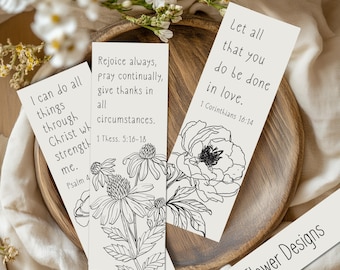 I can do all
things
through
Christ wh
strength
me.
Psalm 4
Rejoice always,
pray continually,
give thanks in
all
circumstances.
1 Thess. 5:16-18
Let all
that you
do be done
in love.
1 Corinthians 16:14
lower Designs